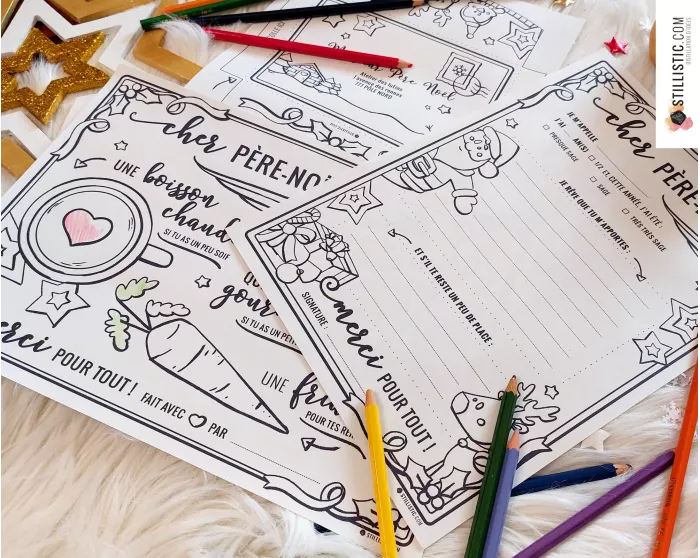 STILLISTIC.COM
DISTILLATION D'IDÉES
Père Noël
Atelier des lutins
1 avenue des rennes
??? PÔLE NORD
cher PÈRE-NO
UNE boisson
chaud
SI TU AS UN PEU SOIF
gour
SI TU AS UN PETI
UNE fri
POUR TES REN
merci POUR TOUT !
FAIT AVEC PAR
STILLISTIC.COM
cher PÈRE-
JE M'APPELLE
J'AI ANS
ET CETTE ANNÉE, J'AI ÉTÉ :
PRESQUE SAGE
SAGE
TRÈS TRÈS SAGE
JE RÊVE QUE TU M'APPORTES :
ET S'IL TE RESTE UN PEU DE PLACE :
SIGNATURE :
merci POUR TOUT !
STILLISTIC.COM